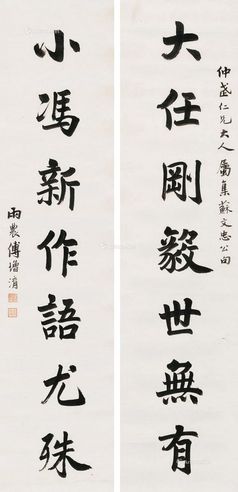 仲盛仁兄大人屬集蘇文忠公句
大任剛毅世無有
小馮新作語尤殊
雨農傅增淯